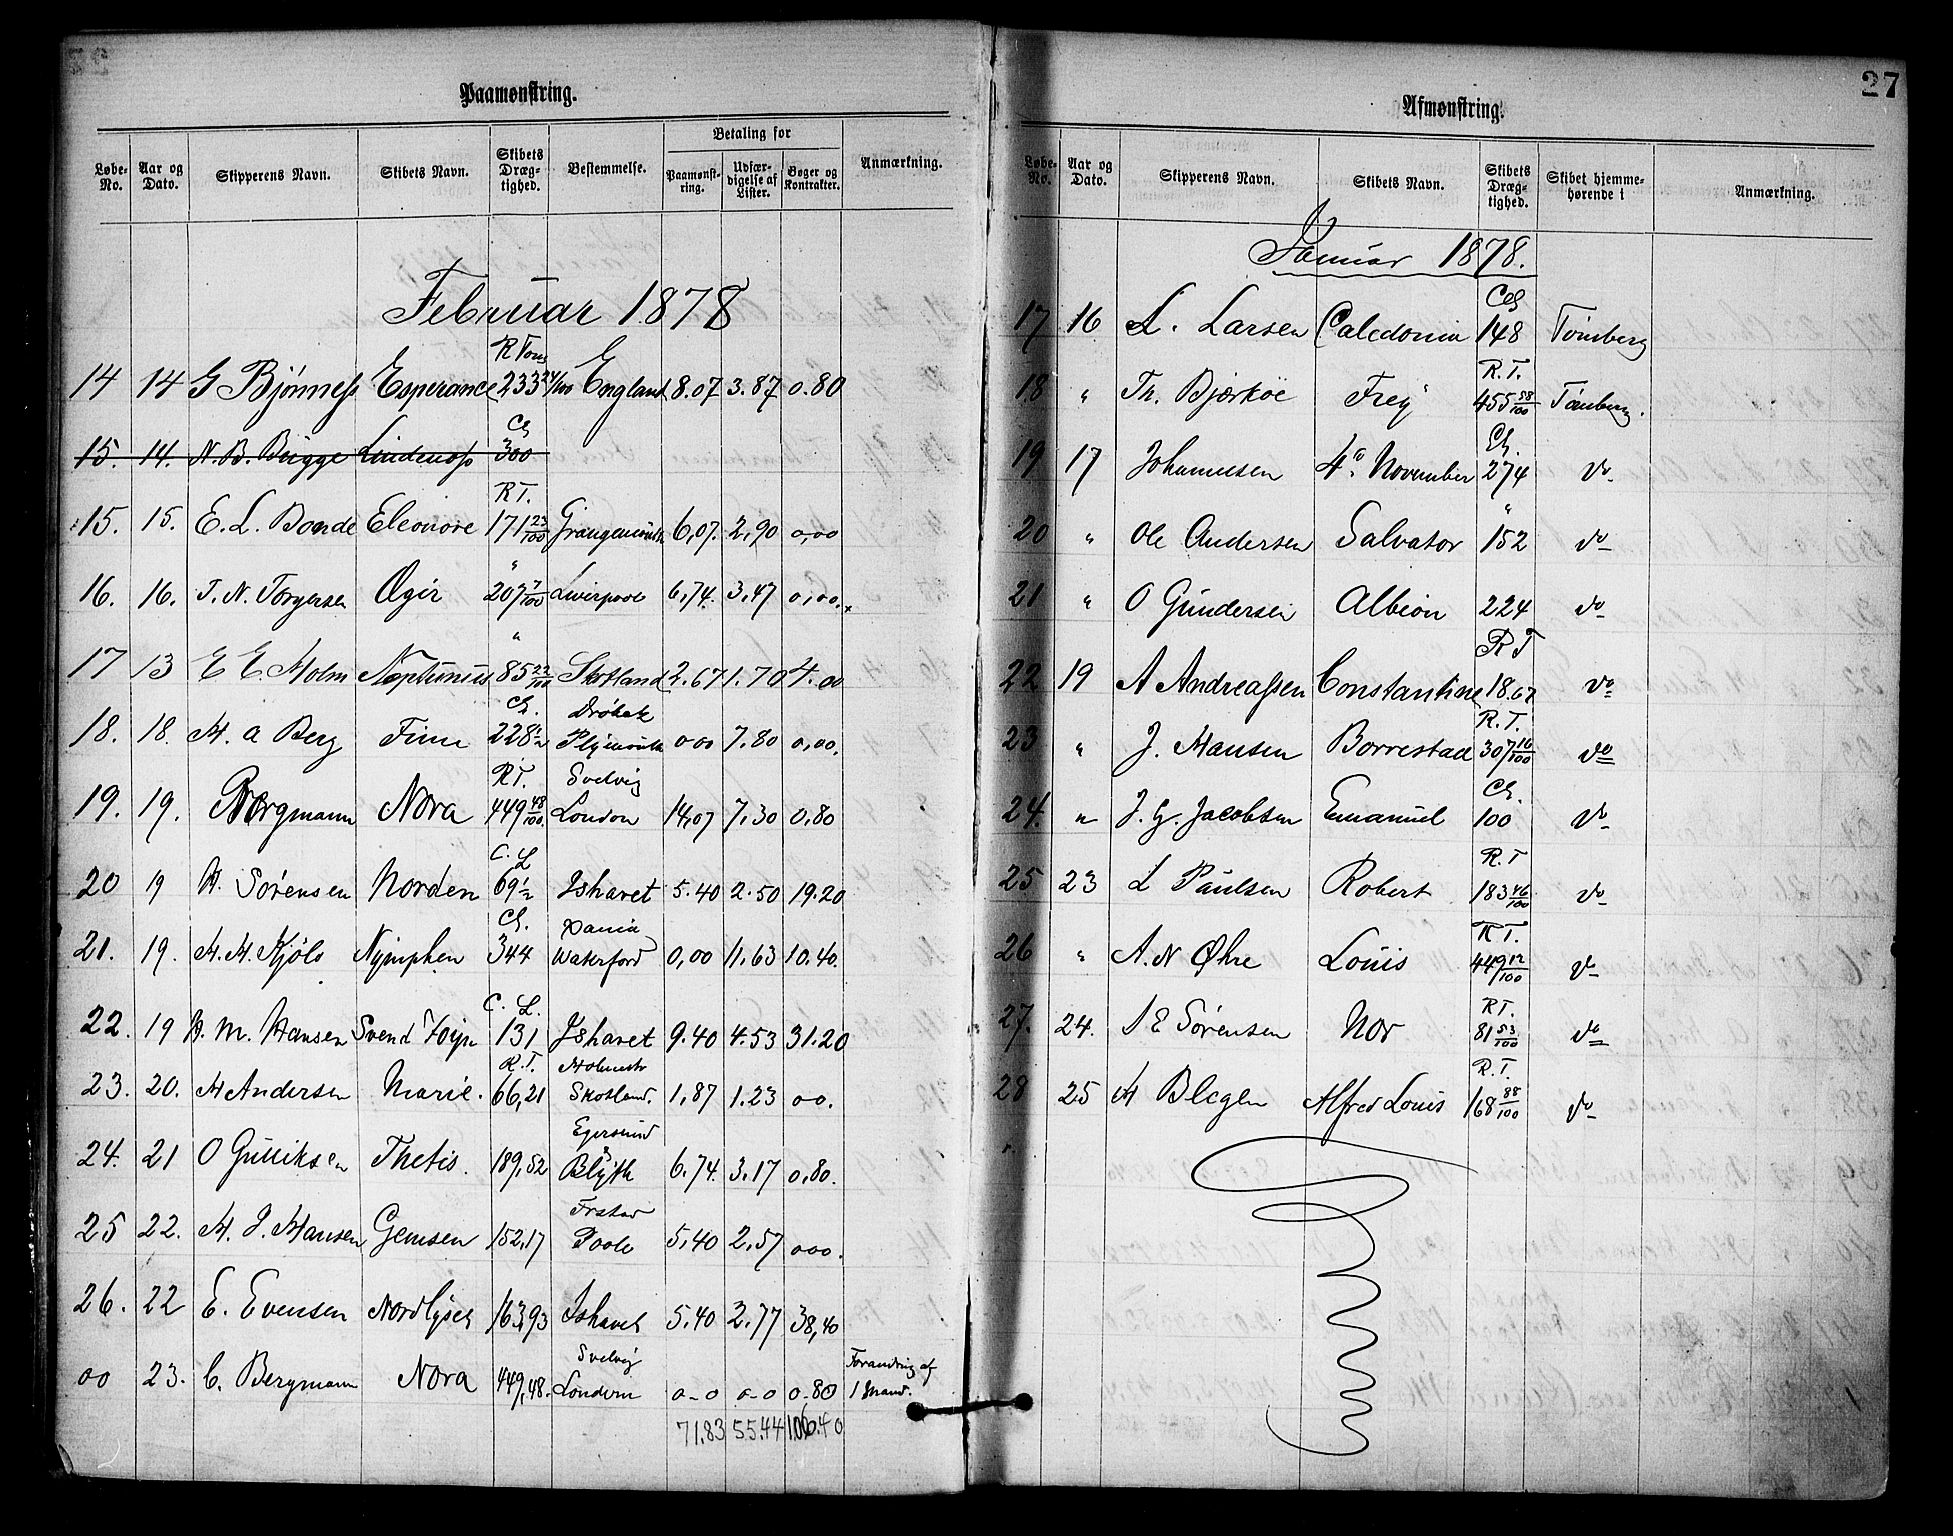 27
Paamønstring.
Løbe-No. Aar og Dato. Skipperens Navn. Skibets Navn. Skibets Dræg-tighed. Bestemmelse. Betaling for Paamønst-ring. Udfær-digelse af Lister. Bøger og Kontrakter. Anmærkning.
Februar 1878
R Tons
14 14 G Bjønness Esperance 233 24/100 England 8.07 3.87 0.80
Cl
15. 14. N. B. Bugge Lindenæs 300
R T.
15. 15. E. L. Bonde Eleonore 171 23/100 Grangemouth 6,07. 2,90 0,00
"
16. 16. T. N. Torgersen Ægir 207 7/100 Liverpool 6,74. 3,47 0,00.
"
17 13 E E. Holm Neptunus 85 22/100 Skotland 2.67 1.70 4.00
Cl. Drøbak
18. 18. H. a Berg Finn 228 1/2 Plymouth 000 7.80 0,00.
R T. Svelvig
19. 19. Bergmann Nora 449 48/100. London 14,07 7,30 0,80
C. L
20 19 H. Sørensen Norden 69 1/2 Ishavet 5.40 2.50 19.20
Cl.
21. 19. H. H. Kjölö Nymphen 344 Waterford 0,00 11,63 10.40.
C. L.
22. 19 H. M. Hansen Svend Foyn 131 Ishavet 9.40 4.53 31.20
R. T. Holmestr
23. 20. H Andersen Marie. 66,21 Skotland. 1,87 1.23 00.
Egersund
24. 21 O Gulliksen Thetis. 189,52 Blyth 6.74. 3.17 0,80.
Frstad
25 22. H. J. Hansen Gemsen 152,17 Poole 5,40 2,57 000.
26. 22 E. Evensen Nordlyset 163,93 Ishavet 5,40 2.77 38,40
Svelvig Forandring af
00 23. C. Bergmann Nora 449,48. London 0-0 0-0 0.80 1 Mand.
71.83 55.44 106.40
Afmønstring.
Løbe-No. Aar og Dato. Skipperens Navn. Skibets Navn. Skibets Dræg-tighed. Skibet hjemme-hørende i Anmærkning.
Januar 1878.
Cl
17 16 L. Larsen Caledonia 148 Tönsberg
R. T.
18 " Th. Bjærköe Frey 455 58/100 Tönsberg.
Cl.
19 17 Johannesen 4de November 274 do
"
20 " Ole Andersen Salvator 152 do
21 " O Gundersen Albion 224 do
R T
22 19 A Andreassen Constantine 18.67 do
R. T.
23 " J. Hansen Borrestad 307 16/100 do
Cl.
24. " J. G. Jacobsen Emanuel 100 do
R. T
25 23 L Paulsen Robert 183 46/100 do
R T.
26 " A. N Øhre Louis 449 12/100 do
R T.
27. 24. S E Sörensen Nor 81 53/100 do
R. T.
28 25 H Blegen Alfred Louis 168 88/100 do